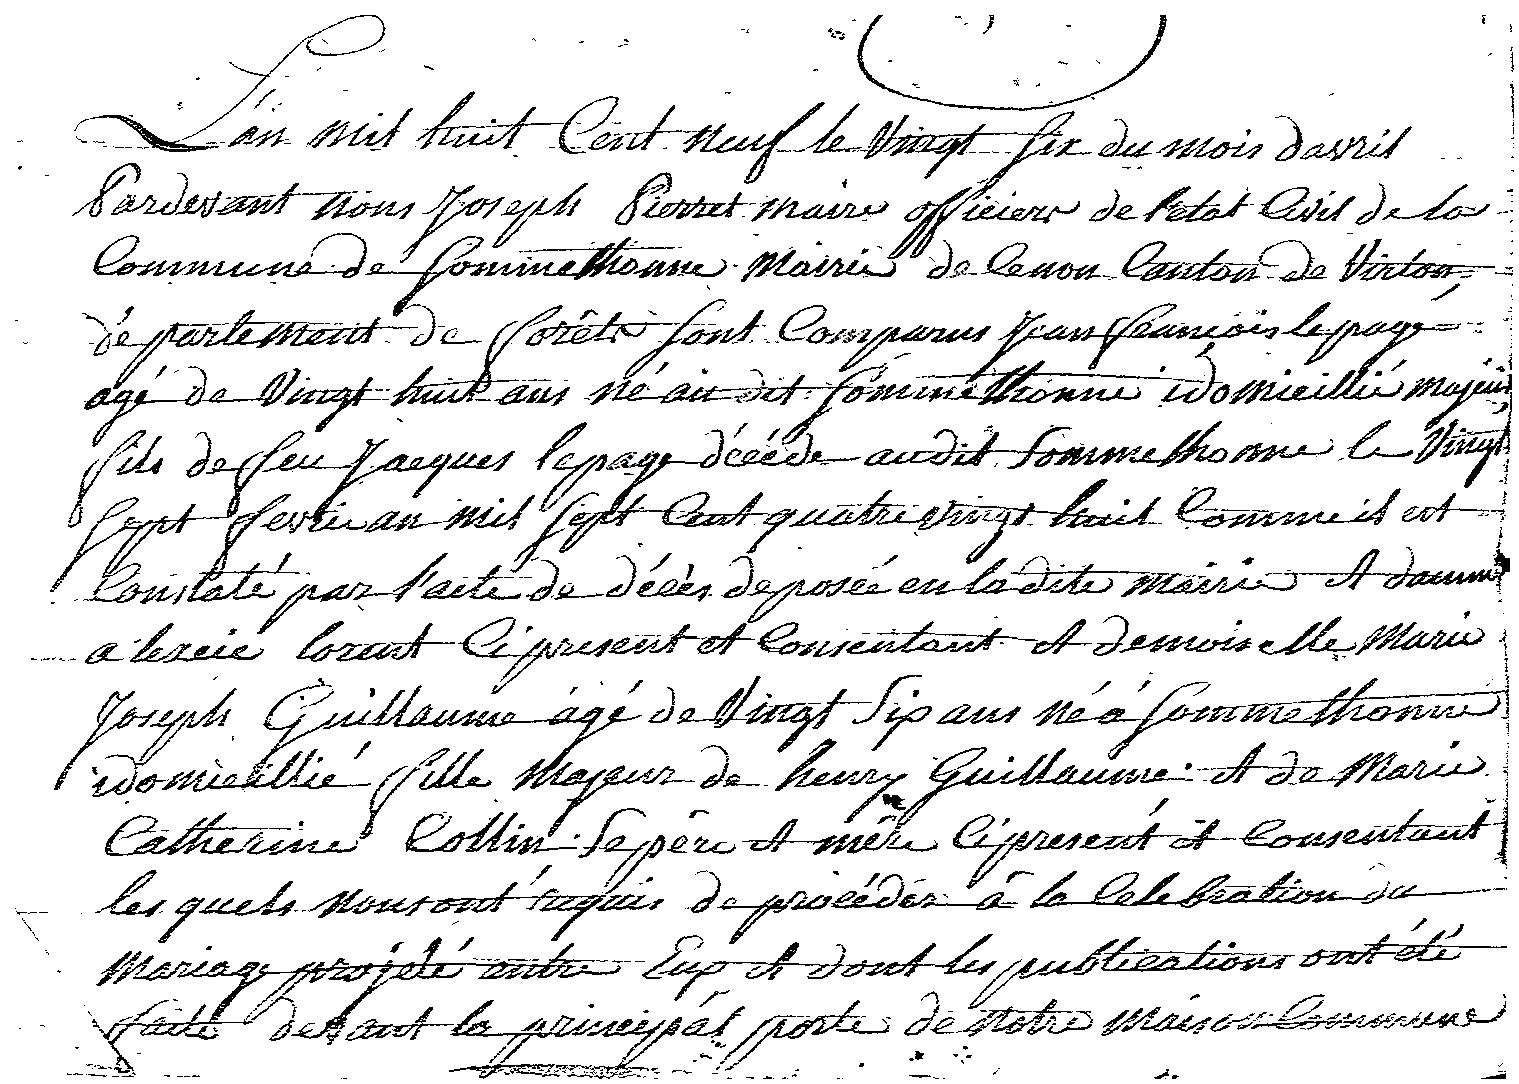 L'an mil huit Cent neuf le Vingt six du mois davril
Pardevant nous Joseph Pierret maire officiers de l'etat Civil de la
Commune de Sommethonne Mairie de cenom Canton de Virton,
département de forêts sont Comparus Jean francois lepage
agé de Vingt huit ans né au dit Sommethonne idomicillié majeur
fils de feu Jacques lepage décéde audit Sommethonne le Vingt
Sept fevrie an mil Sept Cent quatre vingt huit Comme il est
Constaté par l'acté de décès deposée en la dite mairie et damme
alexcie lorant Ci present et Consentant et demoiselle Marie
Joseph Guillaume ágé de Vingt Six ans né á Sommethonne
idomicillié fille majeur de henry Guillaume et de Marie
Catherine Collin. Se père et mère Ci present et Consentant
les quels nous ont requis de procéder à la Celebration du
Mariage projeté entre Eux et dont les publications ont été
faite devant la principal porte de notre maison Commune